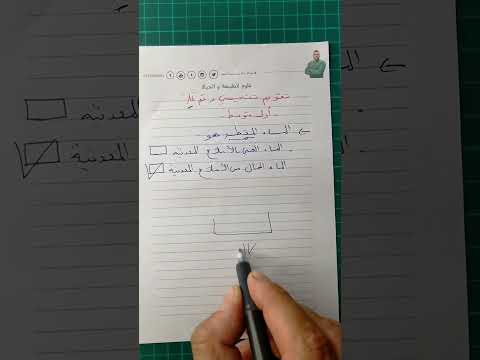 علوم الطبيعة و الحياة
تقويم تشخيصي رقم 12
أولى متوسط
← المـاء المقطر هو
- الماء الغني بالأملاح المعدنية
الماء الخال من الأملاح المعدنية
← المـ
المعدنية
المعدنية